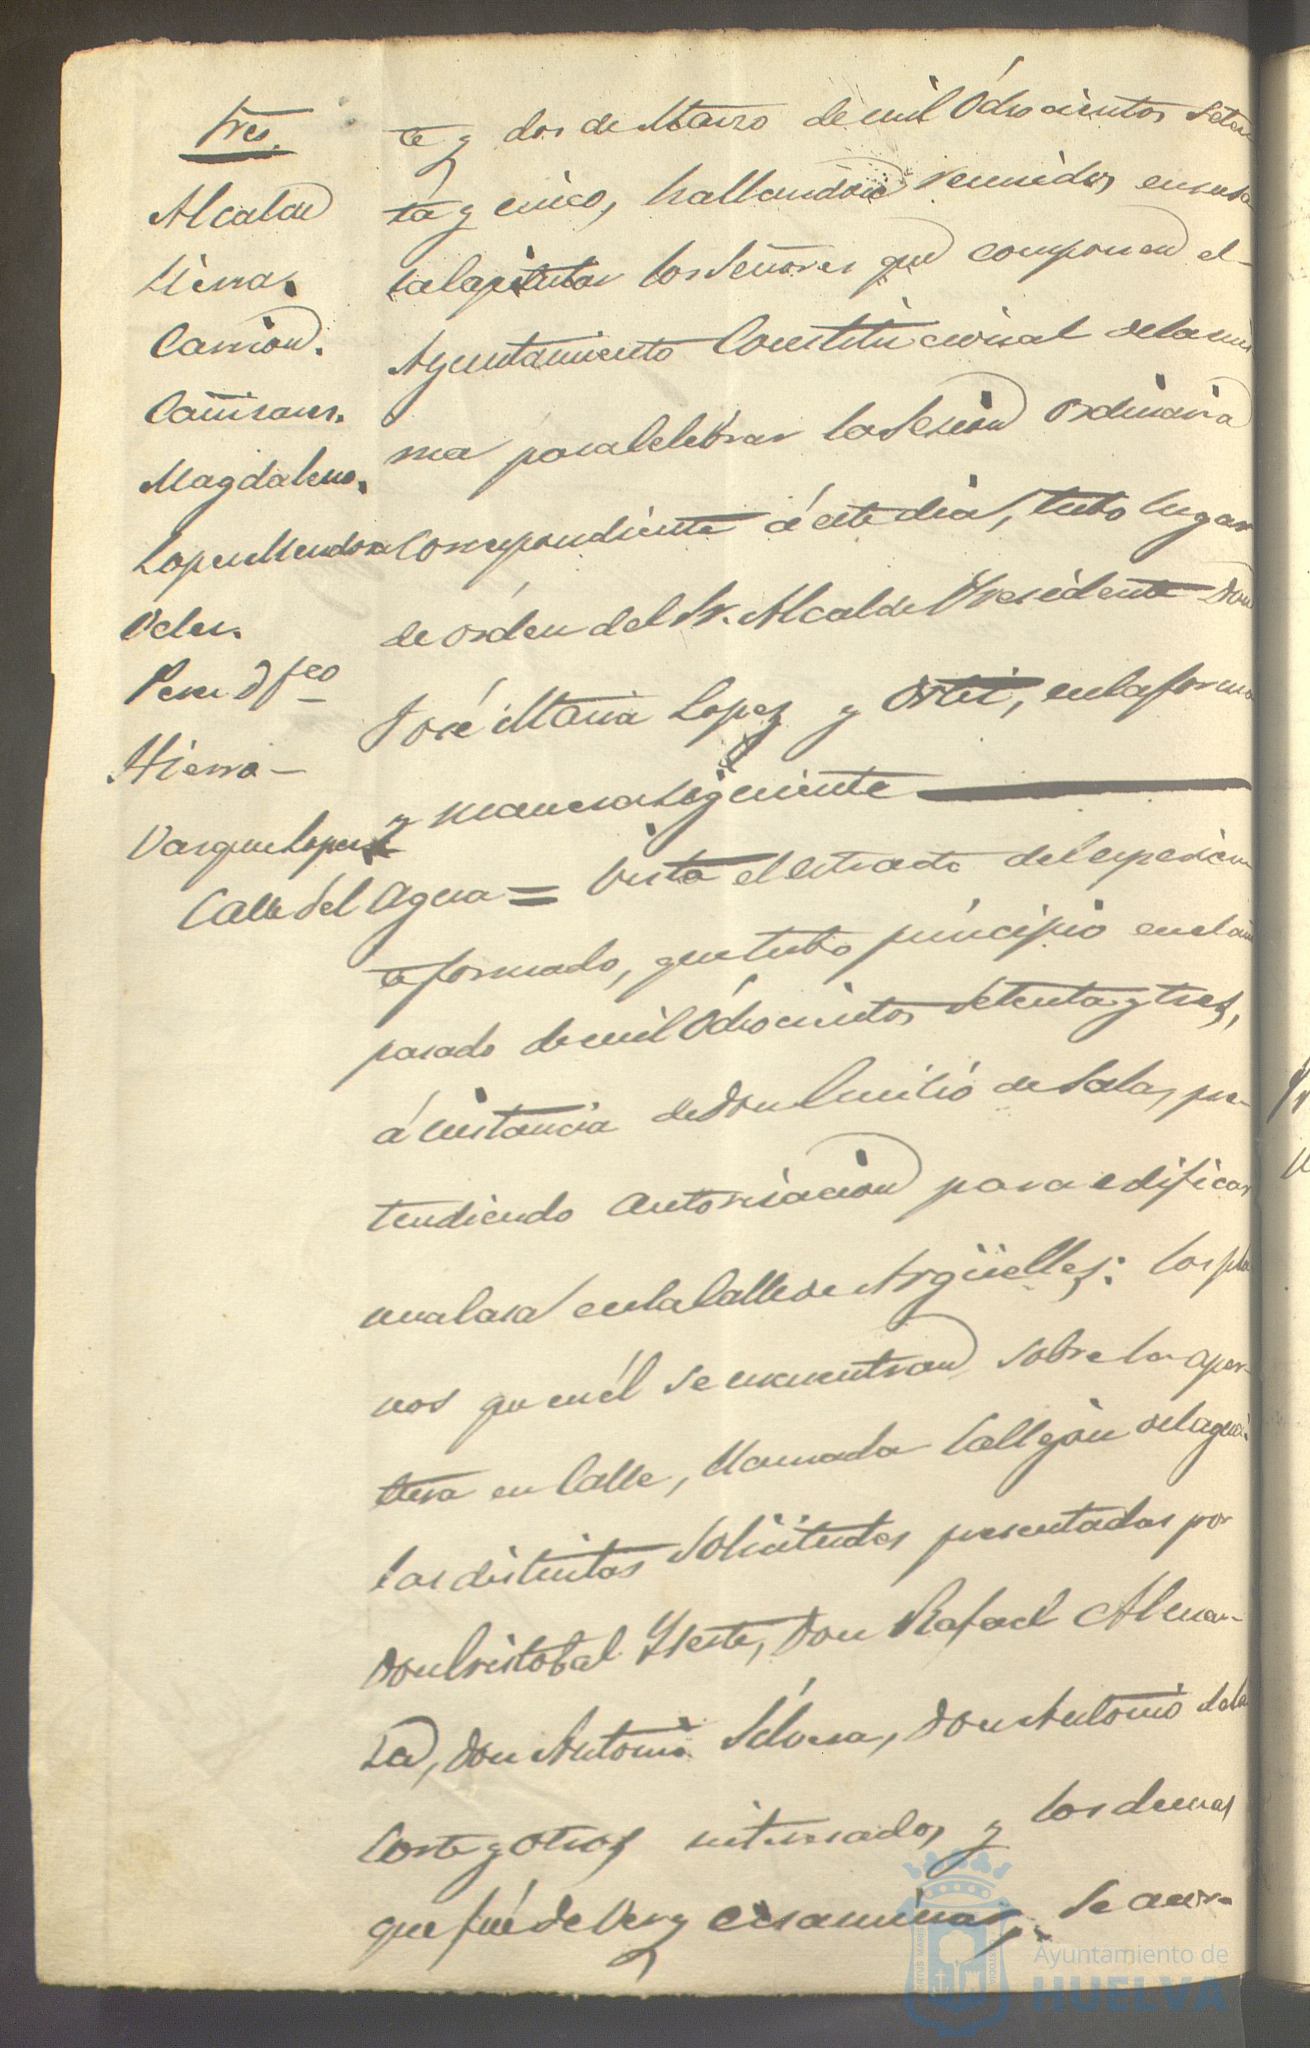 Sres.
Alcalde
Sierra.
Carrion.
Cañisares.
Magdaleno.
Lopez Mendoza
Velez.
Perez D Fco
Hierro
Vazquez Lopez
te y dos de Marzo de mil Ochocientos Seten
ta y cinco, hallandose reunidos en su sa
la Capitular los Señores que componen el
Ayuntamiento Constitucional de la mis
ma para Celebrar la Sesion Ordinaria
Correspondiente á este dia, tubo lugar
de órden del Sr. Alcalde Presidente Don
José Maria Lopez y Ortiz, en la forma
y manera siguiente
Calle del Agua = Vista el estracto del espedien
te formado, que tubo principio en el año
pasado de mil Ochocientos Setenta y tres,
á instancia de Don Emilio de Salas, pre-
tendiendo autorisacion para edificar
una Casa en la Calle de Argüelles: los pla
nos que en él se encuentran sobre la aper-
tura en Calle, llamada Callejon del agua:
las distintas Solicitudes presentadas por
Don Cristobal Yeste, Don Rafael Alman-
sa, Don Antonio Silvera, Don Antonio de la
Corte y Otros interesados, y los demas
que fué de Ver y ecsaminar, Se acor-
Ayuntamiento de
HUELVA